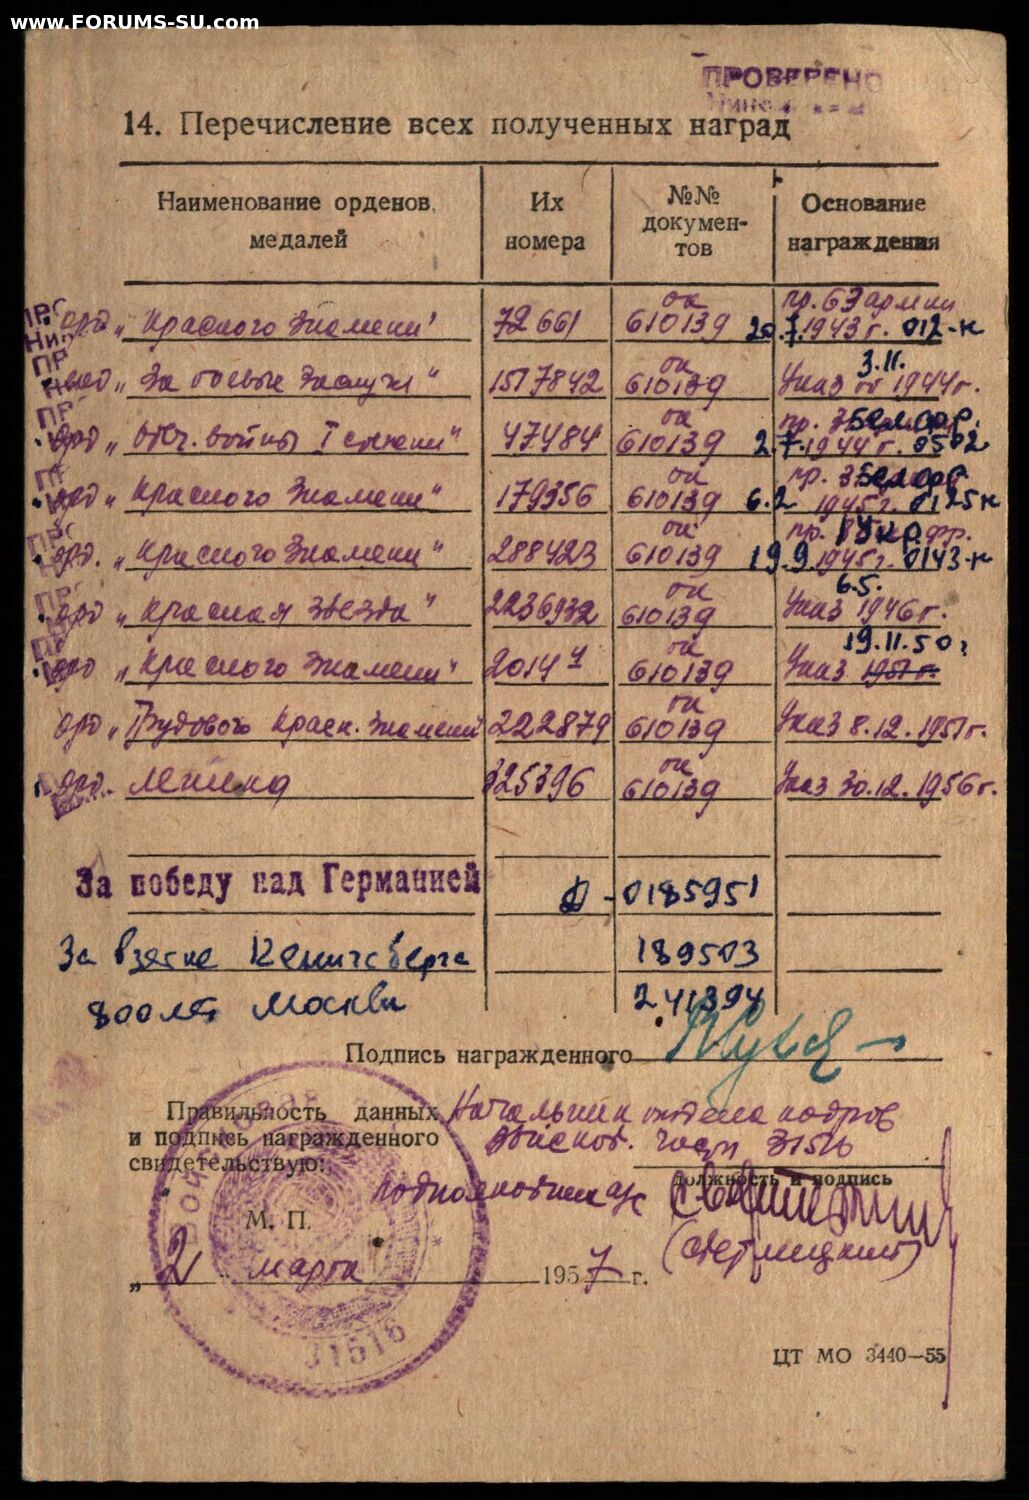 www.FORUMS-SU.com
ПРОВЕРЕНО
14. Перечисление всех полученных наград
Наименование орденов, медалей
Их номера
№№ докумен-тов
Основание награждения
орд „Красного Знамени" 72661 ок 610139 пр. 63 армии 20.7.1943 г. 012-н
„За боевые заслуги" 1517842 ок 610139 Указ от 3.11. 1944 г.
орд „Отч. войны I степени" 47484 ок 610139 пр. 3 Белорр. 2.7.1944 г. 0502
орд „Красного Знамени" 179356 ок 610139 пр. 3 Белорр 6.2 1945 г. 0125н
орд. „Красного Знамени" 288423 ок 610139 пр. фр. 19.9.1945 г. 0143-н
орд „Красная Звезда" 2236932 ок 610139 Указ 6.5. 1946 г.
орд „Красного Знамени" 20144 ок 610139 Указ 19.11.50 г 1951 г.
орд „Трудового Красн. Знамени 222879 ок 610139 Указ 8.12.1951 г.
орд. Ленина 325396 ок 610139 Указ 30.12.1956 г.
За победу над Германией - 0185951
За взятие Кенигсберга 189503
800 лет Москвы 241394
Подпись награжденного
Правильность данных и подпись награжденного свидетельствую:
Начальник отдела кадров
войсков. части 31516
должность и подпись
подполковник а/с
(Светлицкий)
М. П.
„2 марта 1957 г.
31516
ЦТ МО 3440—55